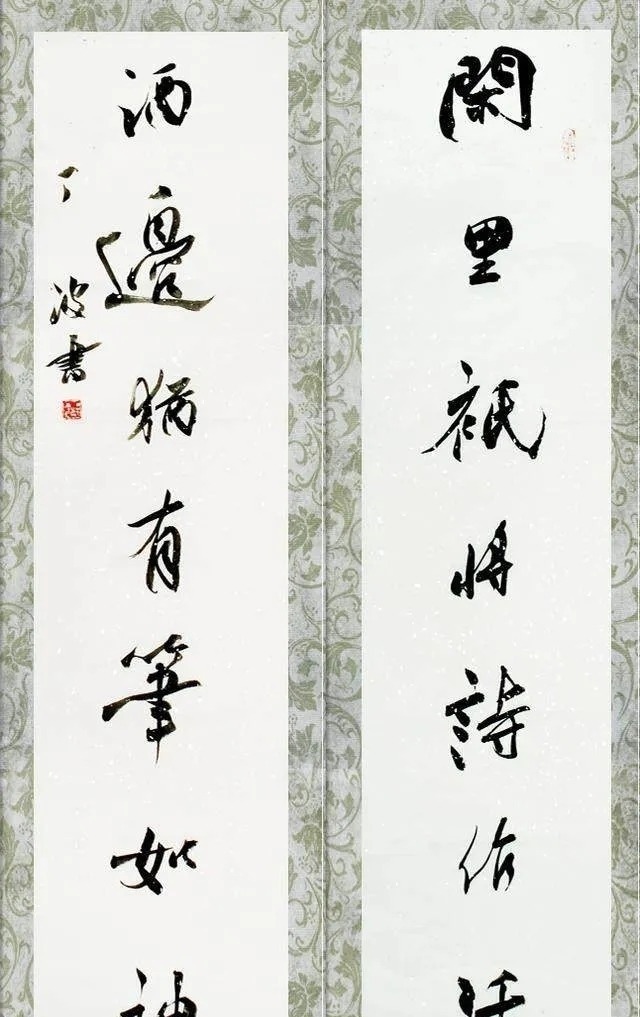 閑里祇將詩作
酒邊猶有筆如神
丁波書